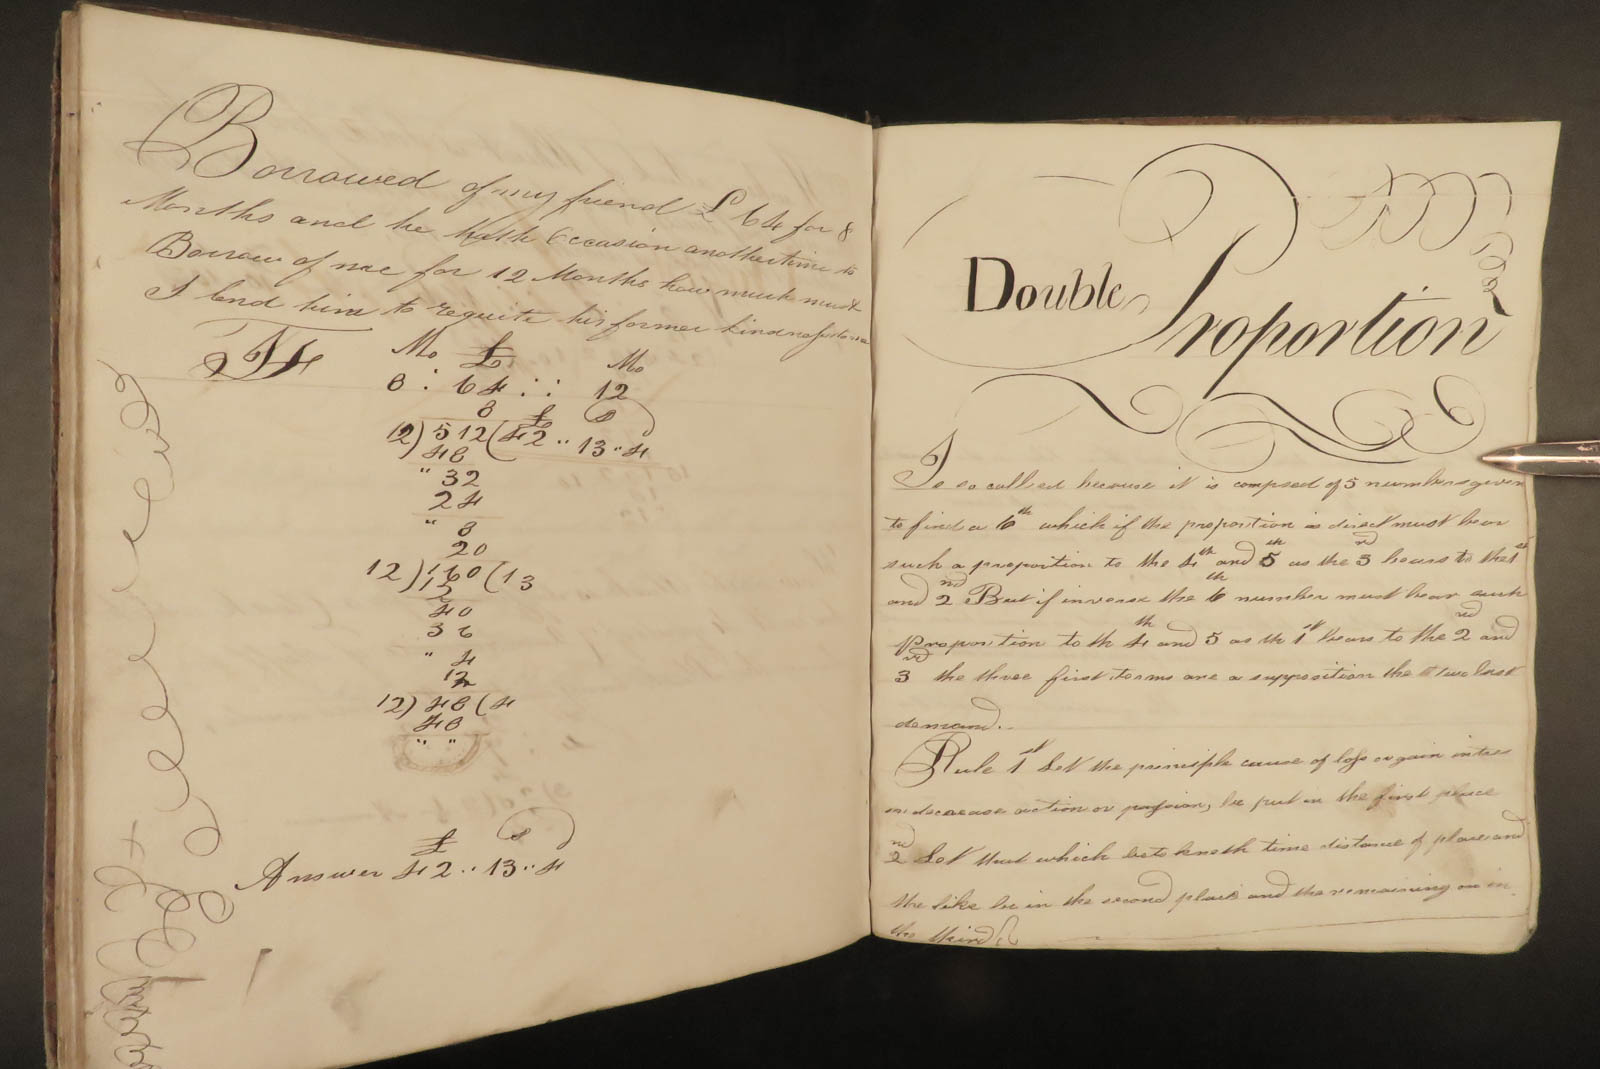 Borrowed of my friend £ 64 for 8
Months and he hath Occasion another time to
Borrow of me for 12 Months how much must
I lend him to requite his former kindness to me
If
Mo £ Mo
8 : 64 :: 12
8 £ s d
12) 512 (42 .. 13 .. 4
48
" 32
24
" 8
20
12) 160 (13
12
40
36
" 4
12
12) 48 (4
48
" "
£ s d
Answer 42 .. 13 .. 4
Double
Proportion
Is so called because it is compsed of 5 numbers given
to find a 6th which if the proportion is direct must bear
such a proportion to the 4th and 5th as the 3rd bears to the 1st
and 2nd But if inverse the 6th number must bear such
Proporition to th 4th and 5 as th 1st bears to the 2nd and
3rd the three first terms are a supposition the two last
demand.
Rule 1st Let the principle cause of loss or gain intres
or decrease action or passion, be put in the first place
2nd Let that which betokneth time distance of place and
the like be in the second place and the remaining on in
the third